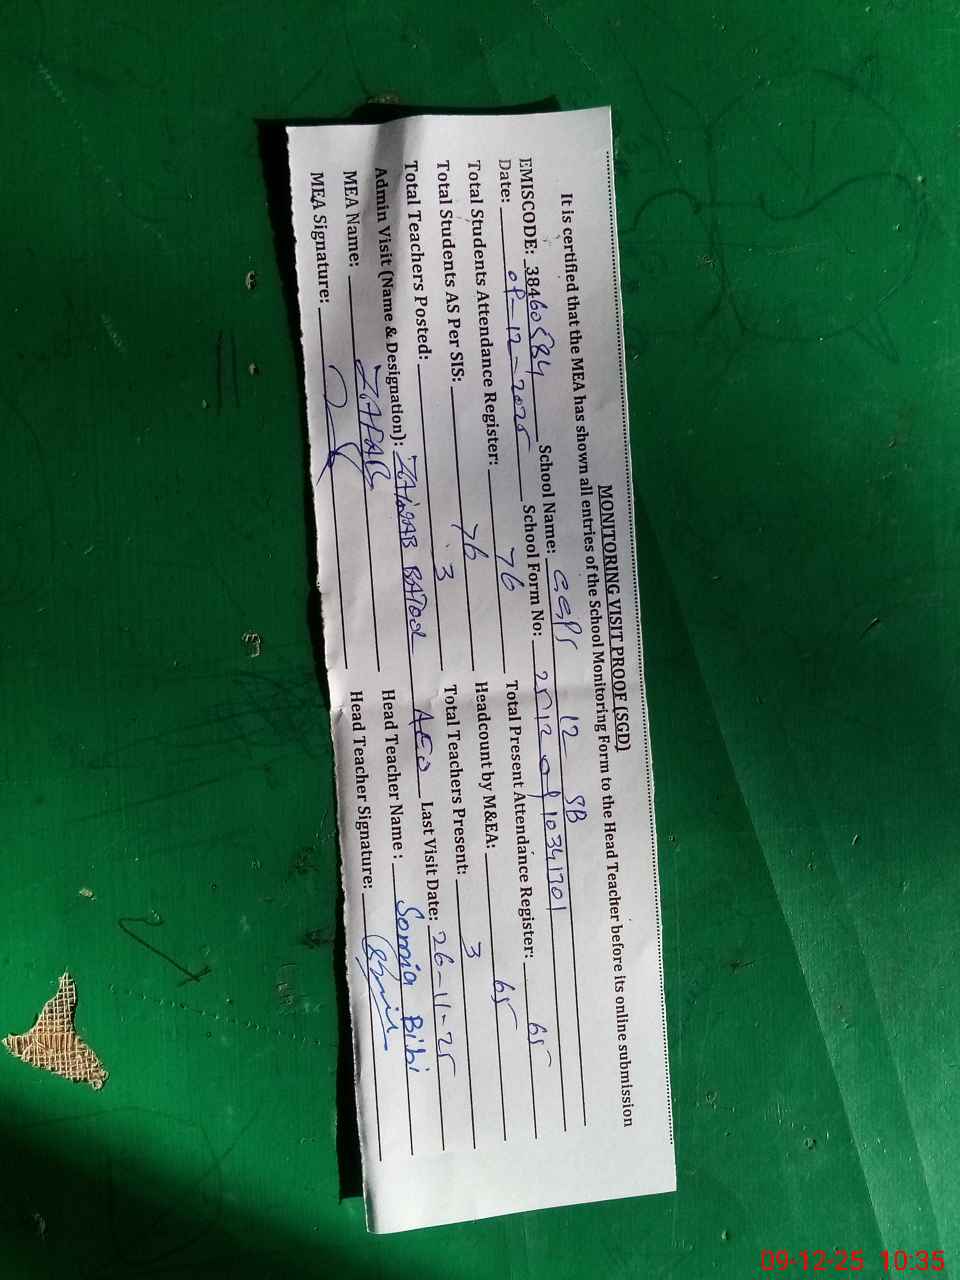 MONITORING VISIT PROOF (SGD)
It is certified that the MEA has shown all entries of the School Monitoring Form to the Head Teacher before its online submission
EMISCODE: 38460584 School Name: GGPS 12 SB
Date: 09-12-2025 School Form No: 25120910341701
Total Students Attendance Register: 76 Total Present Attendance Register: 65
Total Students AS Per SIS: 76 Headcount by M&EA: 65
Total Teachers Posted: 3 Total Teachers Present: 3
Admin Visit (Name & Designation): ZAINAB BATOOL AEO Last Visit Date: 26-11-25
MEA Name: ZAFAR Head Teacher Name : Somia Bibi
MEA Signature: Head Teacher Signature:
09-12-25 10:35